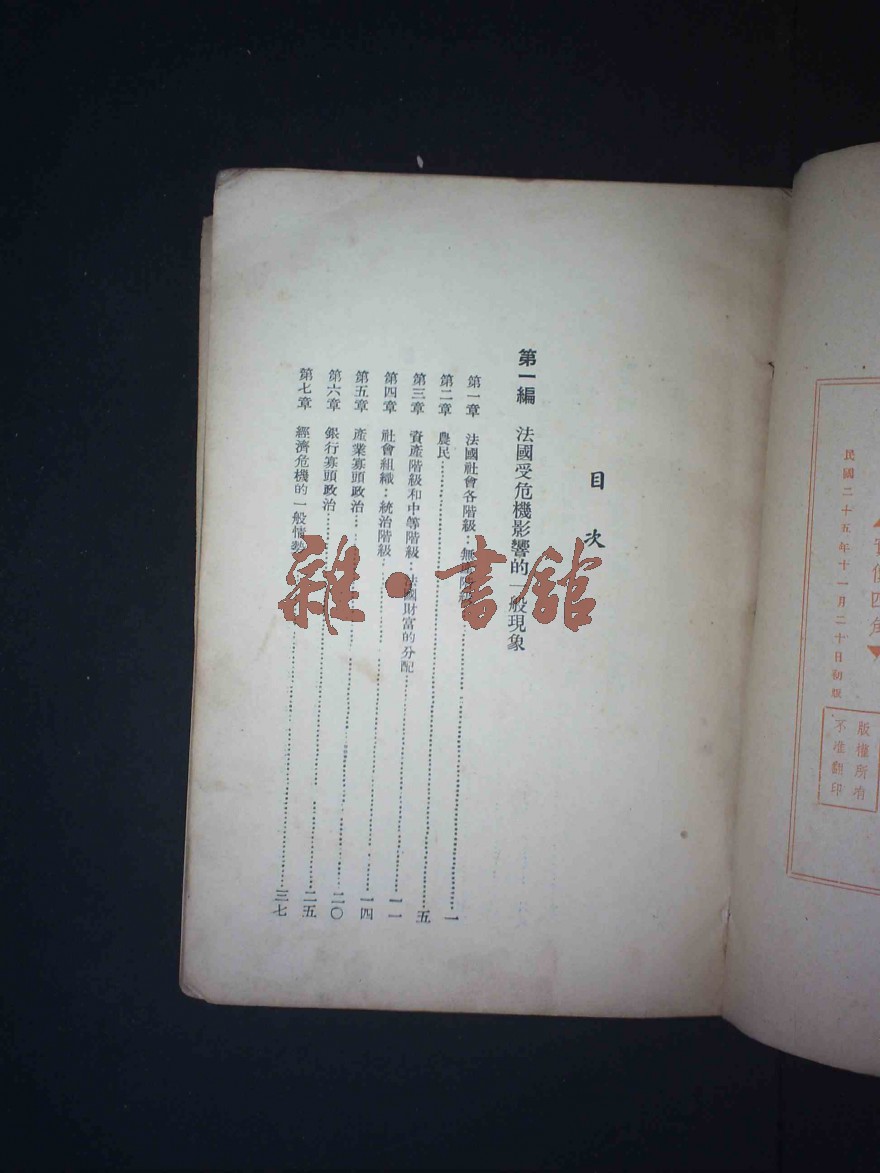 ▲實價四角▼
版權所有
不准翻印
民國二十五年十一月二十日初版
目次
第一編 法國受危機影響的一般現象
第一章 法國社會各階級：無產階級……一
第二章 農民……五
第三章 資產階級和中等階級：法國財富的分配……一一
第四章 社會組織：統治階級……一四
第五章 產業寡頭政治……二〇
第六章 銀行寡頭政治……二五
第七章 經濟危機的一般情勢……三七
雜·書舘